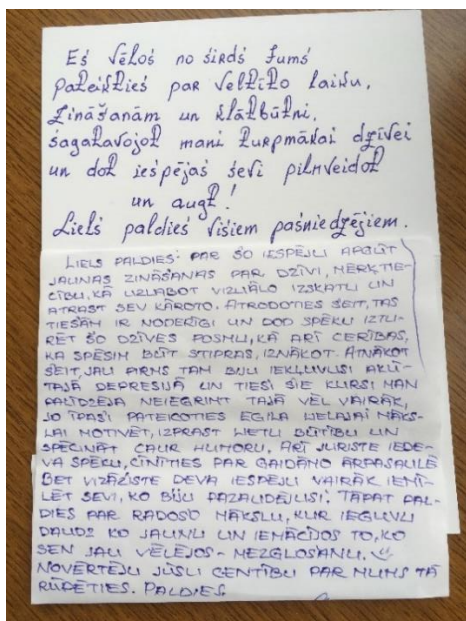 Es vēlos no sirds Jums
pateikties par veltīto laiku,
zināšanām un klātbūtni,
sagatavojot mani turpmākai dzīvei
un dot iespējas sevi pilnveidot
un augt!
Liels paldies visiem pasniedzējiem.
LIELS PALDIES PAR ŠO IESPĒJU APGŪT
JAUNAS ZINĀŠANAS PAR DZĪVI, MĒRĶTIE-
CĪBU, KĀ UZLABOT VIZUĀLO IZSKATU UN
ATRAST SEV KĀROTO. ATRODOTIES ŠEIT, TAS
TIEŠĀM IR NODERĪGI UN DOD SPĒKU IZTU-
RĒT ŠO DZĪVES POSMU, KĀ ARĪ CERĪBAS,
KA SPĒSIM BŪT STIPRAS, IZNĀKOT. ATNĀKOT
ŠEIT, JAU PIRMS TAM BIJU IEKĻUVUSI AKŪ-
TAJĀ DEPRESIJĀ UN TIEŠI ŠIE KURSI MAN
PALĪDZĒJA NEIEGRIMT TAJĀ VĒL VAIRĀK,
JO ĪPAŠI PATEICOTIES EGILA LIELAJAI MĀKS-
LAI MOTIVĒT, IZPRAST LIETU BŪTĪBU UN
SPĒCINĀT CAUR HUMORU. ARĪ JURISTE IEDE-
VA SPĒKU, CĪNĪTIES PAR GAIDĀMO ĀRPASAULĒ
BET VIZĀŽISTE DEVA IESPĒJU VAIRĀK IEMĪ-
LĒT SEVI, KO BIJU PAZAUDĒJUSI. TĀPAT PAL-
DIES PAR RADOŠO MĀKSLU, KUR IEGUVU
DAUDZ KO JAUNU UN IEMĀCĪJOS TO, KO
SEN JAU VĒLĒJOS - MEZGLOŠANU.
NOVĒRTĒJU JŪSU CENTĪBU PAR MUMS TĀ
RŪPĒTIES. PALDIES